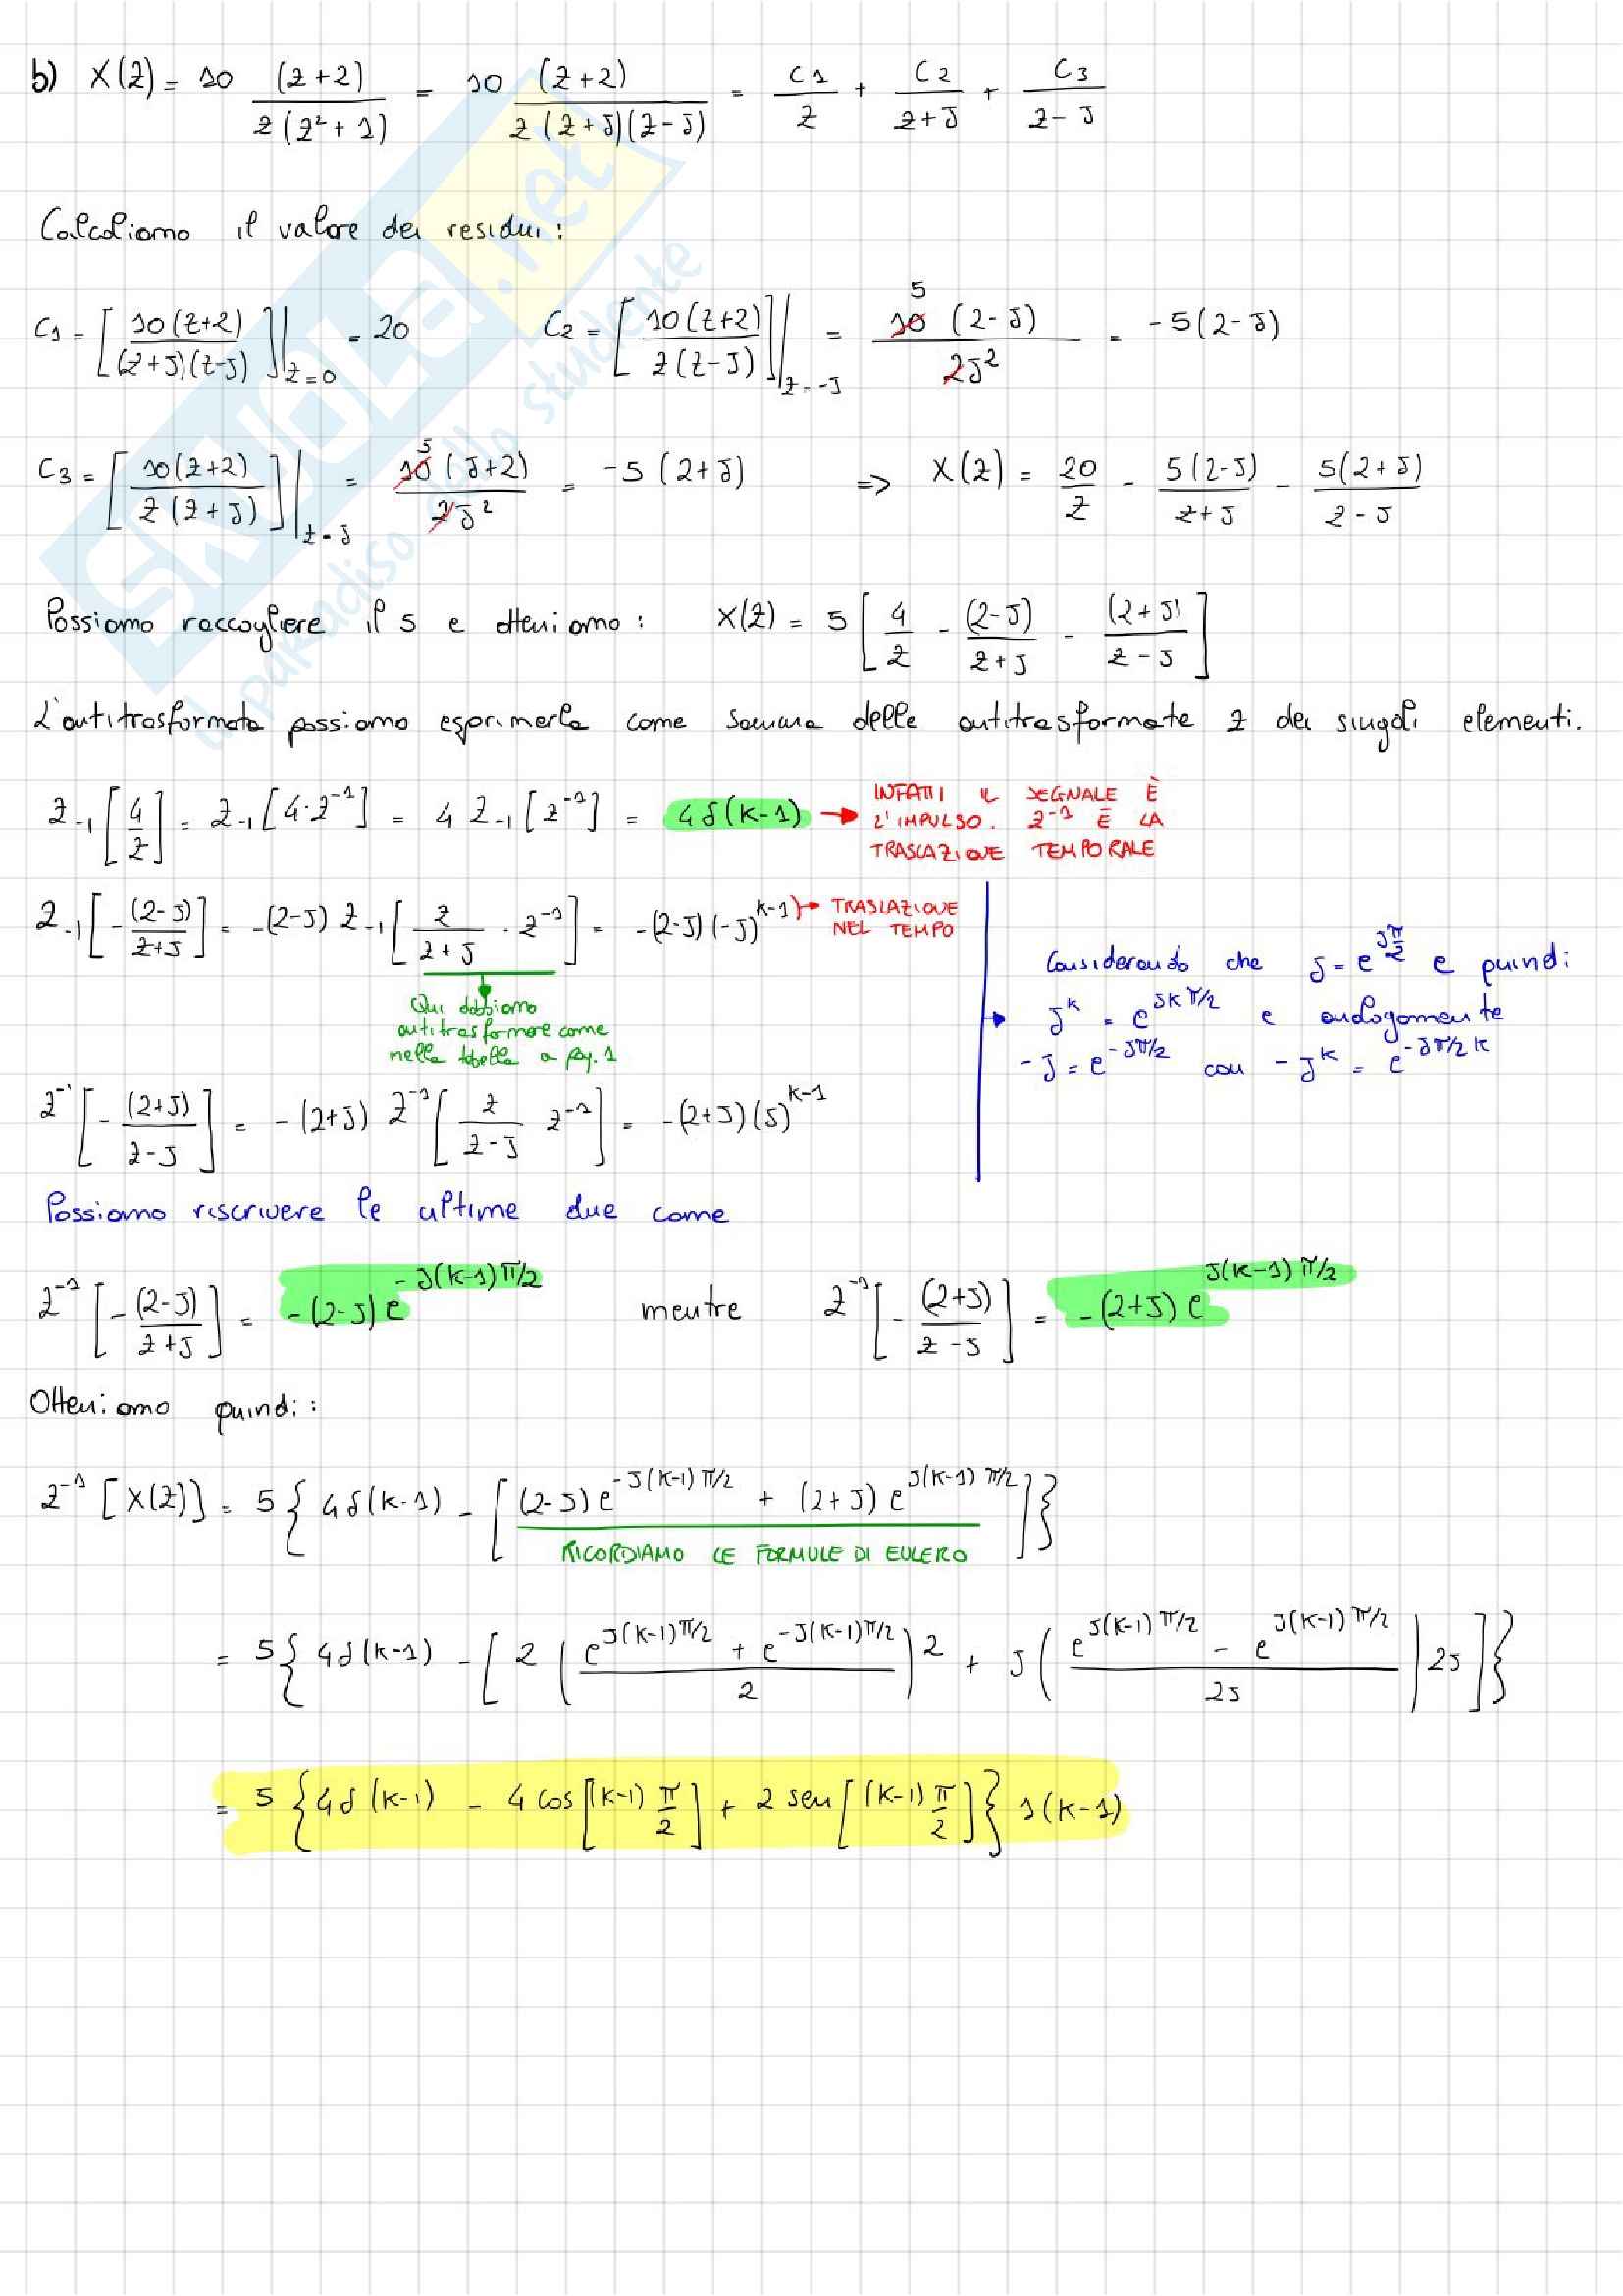 b) X(z) = 10 (z+2) / z(z²+1) = 10 (z+2) / z(z+j)(z-j) = C1/z + C2/(z+j) + C3/(z-j)
Calcoliamo il valore dei residui:
C1 = [10(z+2) / (z+j)(z-j)]|z=0 = 20 C2 = [10(z+2) / z(z-j)]|z=-j = 10 5 (2-j) / 2j² = -5(2-j)
C3 = [10(z+2) / z(z+j)]|z=j = 10 5 (j+2) / 2j² = -5(2+j) => X(z) = 20/z - 5(2-j)/(z+j) - 5(2+j)/(z-j)
Possiamo raccogliere il 5 e otteniamo: X(z) = 5 [4/z - (2-j)/(z+j) - (2+j)/(z-j)]
L'antitrasformata possiamo esprimerla come somma delle antitrasformate z dei singoli elementi.
Z-1 [4/z] = Z-1 [4·z⁻¹] = 4 Z-1 [z⁻¹] = 4δ(k-1) → INFATTI IL SEGNALE È
L'IMPULSO. z⁻¹ È LA
TRASLAZIONE TEMPORALE
Z-1 [-(2-j)/(z+j)] = -(2-j) Z-1 [z/(z+j) · z⁻¹] = -(2-j)(-j)^(k-1) → TRASLAZIONE
NEL TEMPO
Qui dobbiamo
antitrasformare come
nella tabella a pag. 1
Considerando che j = e^(jπ/2) e quindi
j^k = e^(jkπ/2) e analogamente
-j = e^(-jπ/2) con -j^k = e^(-jπ/2 k)
Z⁻¹ [-(2+j)/(z-j)] = -(2+j) Z⁻¹ [z/(z-j) z⁻¹] = -(2+j)(j)^(k-1)
Possiamo riscrivere le ultime due come
Z⁻¹ [-(2-j)/(z+j)] = -(2-j) e^(-j(k-1)π/2) mentre Z⁻¹ [-(2+j)/(z-j)] = -(2+j) e^(j(k-1)π/2)
Otteniamo quindi:
Z⁻¹ [X(z)] = 5 { 4δ(k-1) - [(2-j) e^(-j(k-1)π/2) + (2+j) e^(j(k-1)π/2)] }
RICORDIAMO LE FORMULE DI EULERO
= 5 { 4δ(k-1) - [2 ((e^(j(k-1)π/2) + e^(-j(k-1)π/2)) / 2) 2 + j ((e^(j(k-1)π/2) - e^(j(k-1)π/2)) / 2j) 2j] }
= 5 { 4δ(k-1) - 4 cos[(k-1) π/2] + 2 sen[(k-1) π/2] } 1(k-1)
SKUOLA.net
il paradiso dello studente